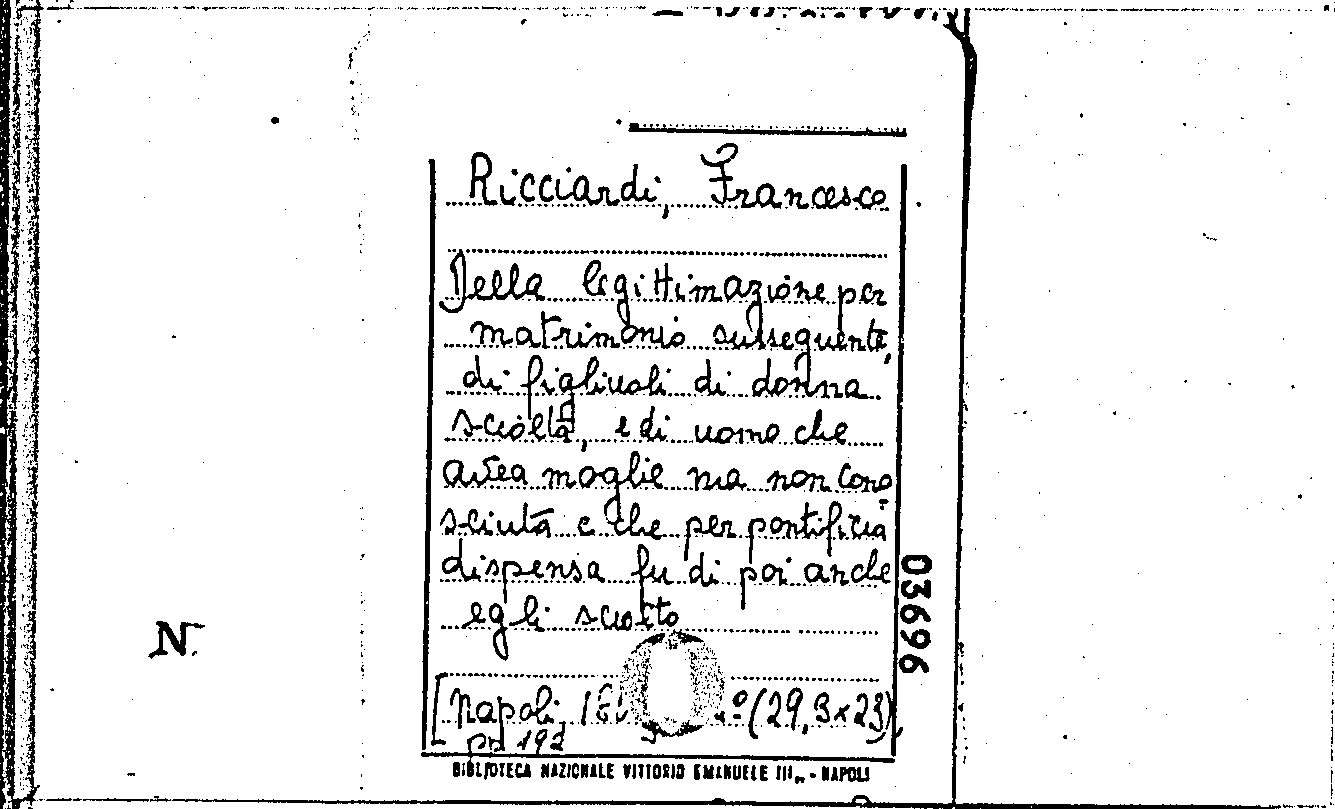 Ricciardi, Francesco
Della legittimazione per
matrimonio susseguente,
di figliuoli di donna
sciolta, e di uomo che
avea moglie ma non cono
sciuta e che per pontificia
dispensa fu di poi anche
egli sciolto
[Napoli, (29,3x23),
pp 192
BIBLIOTECA NAZIONALE VITTORIO EMANUELE III - NAPOLI
03696
N.